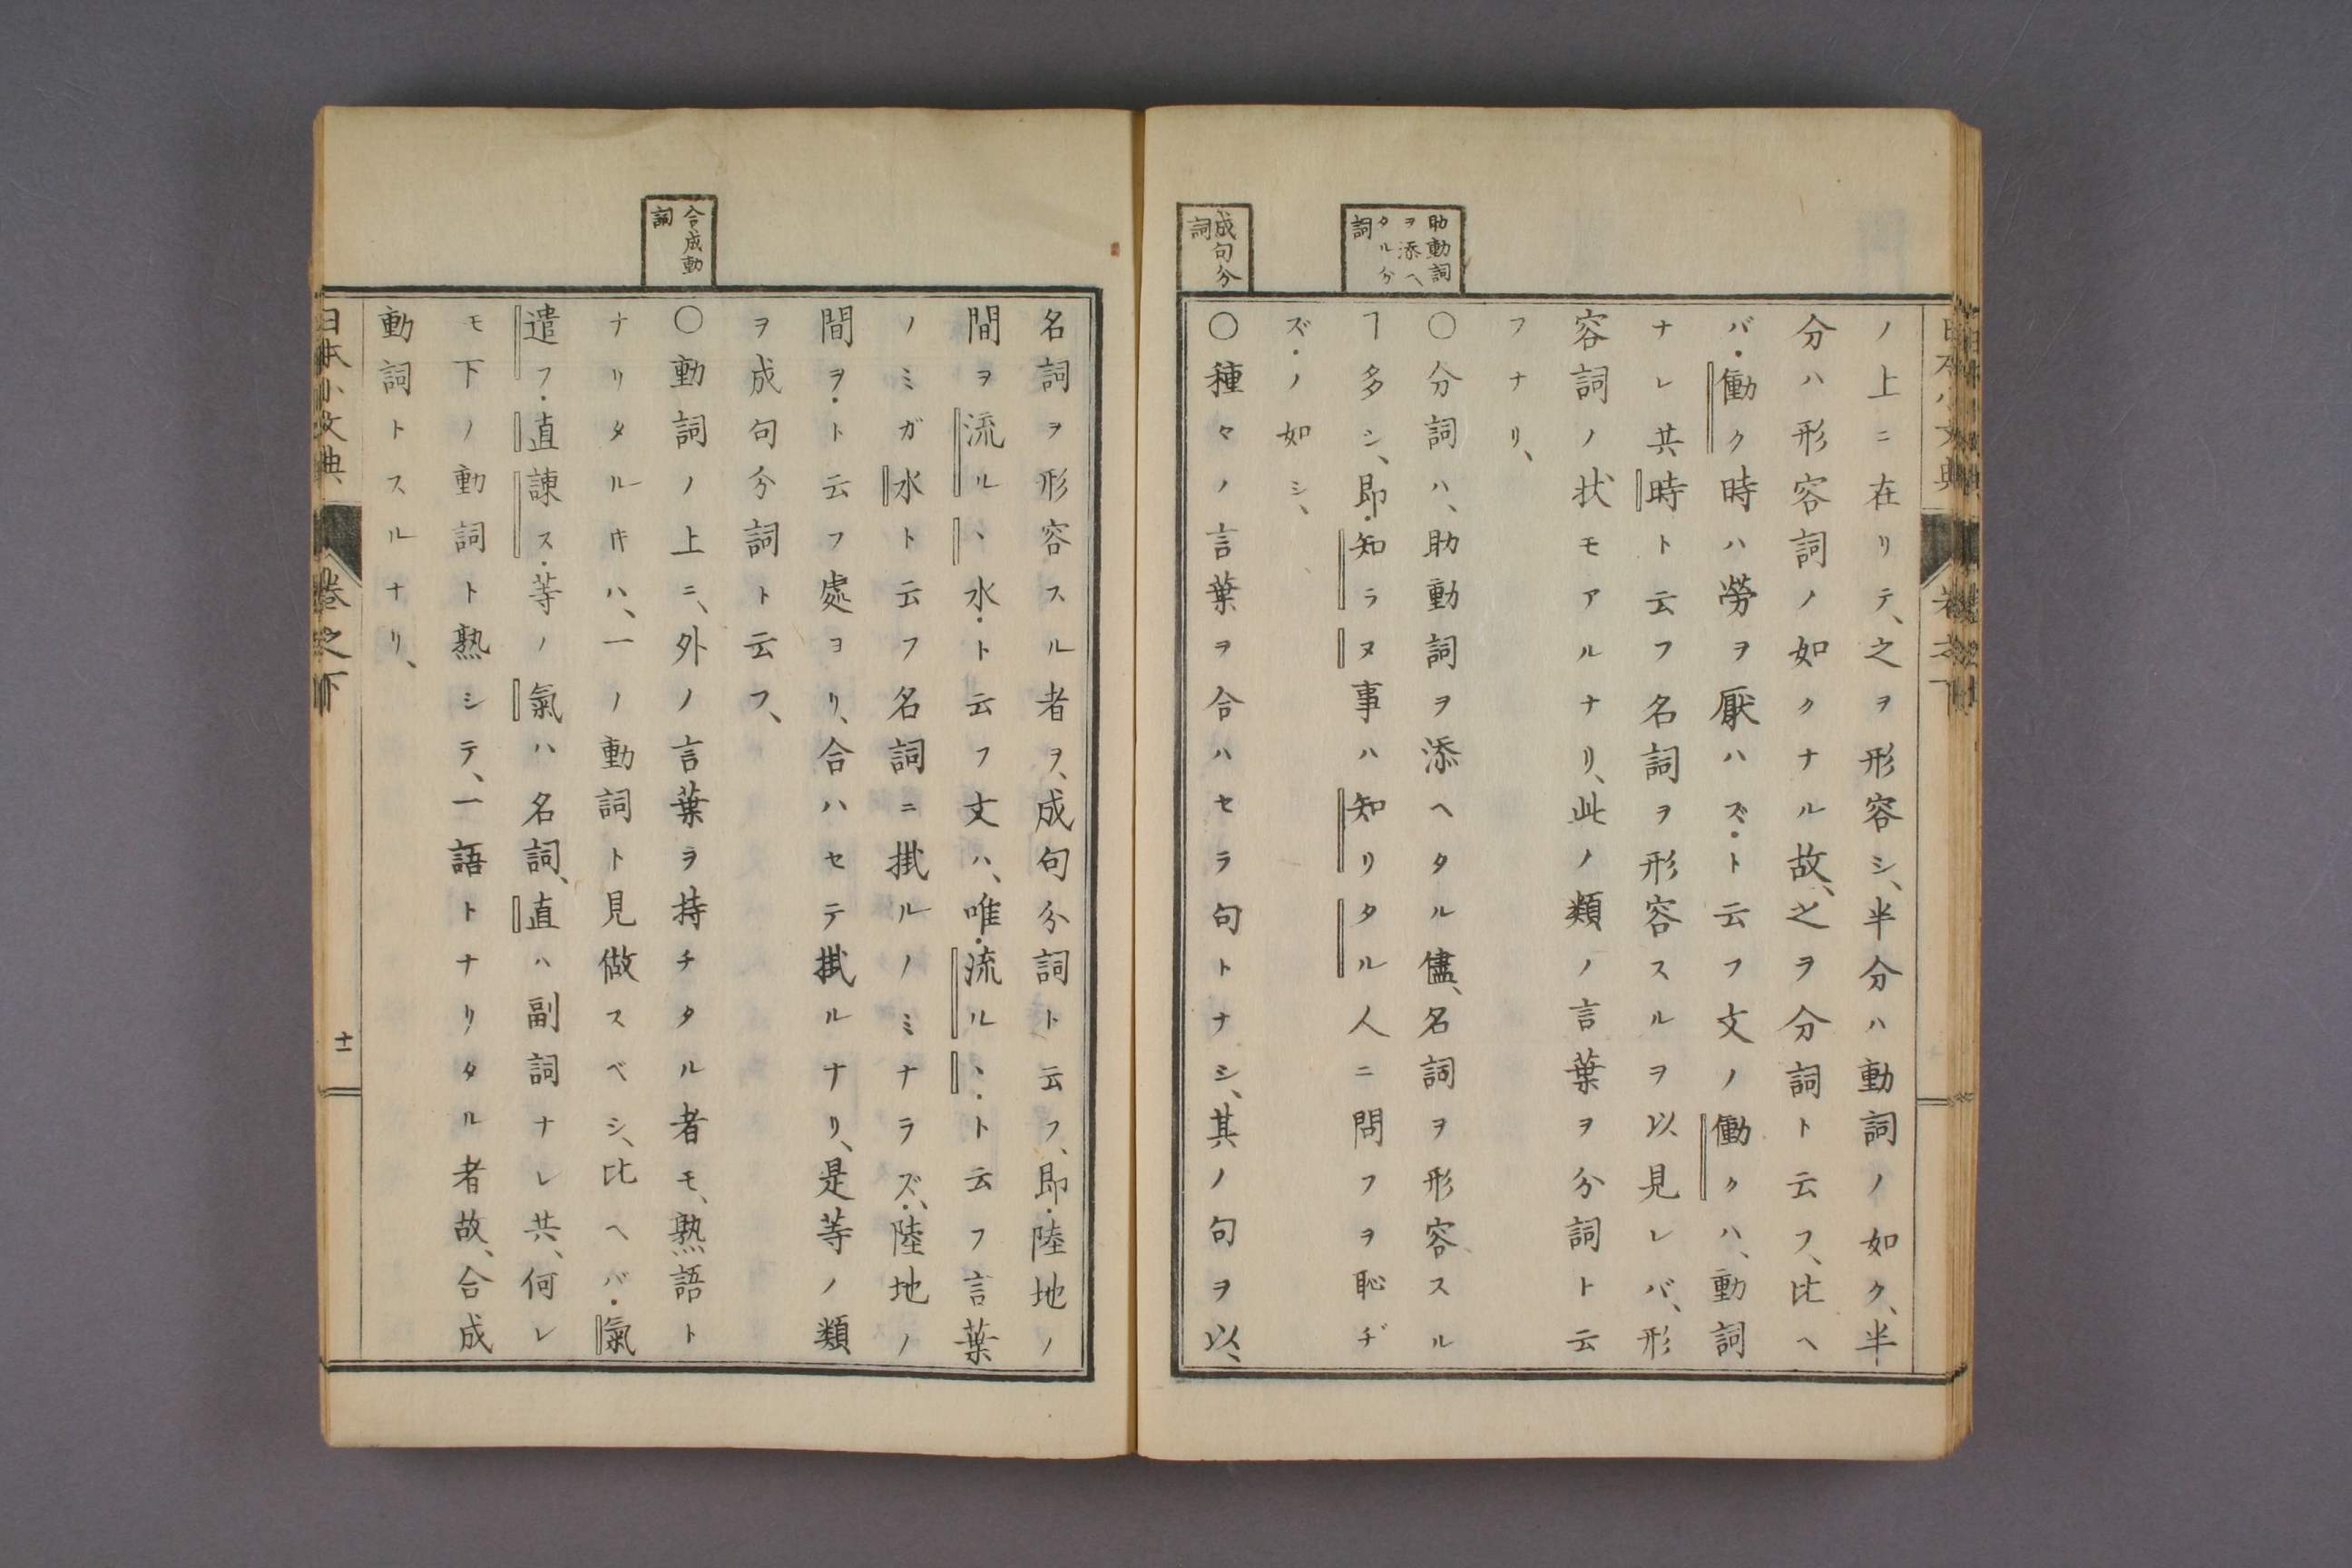 ノ上ニ在リテ、之ヲ形容シ、半分ハ動詞ノ如ク、半
分ハ形容詞ノ如クナル故、之ヲ分詞ト云フ、比ヘ
バ・働ク時ハ勞ヲ厭ハズ・ト云フ文ノ働クハ、動詞
ナレ共時ト云フ名詞ヲ形容スルヲ以見レバ、形
容詞ノ状モアルナリ、此ノ類ノ言葉ヲ分詞ト云
フナリ、
助動詞
ヲ添ヘ
タル分
詞
〇分詞ハ、助動詞ヲ添ヘタル儘、名詞ヲ形容スル
ヿ多シ、即・知ラヌ事ハ知リタル人ニ問フヲ恥ヂ
ズ・ノ如シ、
成句分
詞
〇種々ノ言葉ヲ合ハセラ句トナシ、其ノ句ヲ以、
名詞ヲ形容スル者ヲ、成句分詞ト云フ、即・陸地ノ
間ヲ流ルヽ水・ト云フ文ハ、唯・流ルヽ・ト云フ言葉
ノミガ水ト云フ名詞ニ掛ルノミナラズ、・陸地ノ
間ヲ・ト云フ處ヨリ、合ハセテ掛ルナリ、是等ノ類
ヲ成句分詞ト云フ、
合成動
詞
〇動詞ノ上ニ、外ノ言葉ヲ持チタル者モ、熟語ト
ナリタルキハ、一ノ動詞ト見做スベシ、比ヘバ・氣
遣フ・直諌ス・等ノ氣ハ名詞、直ハ副詞ナレ共、何レ
モ下ノ動詞ト熟シテ、一語トナリタル者故、合成
動詞トスルナリ、
日本小文典
卷之下
十一